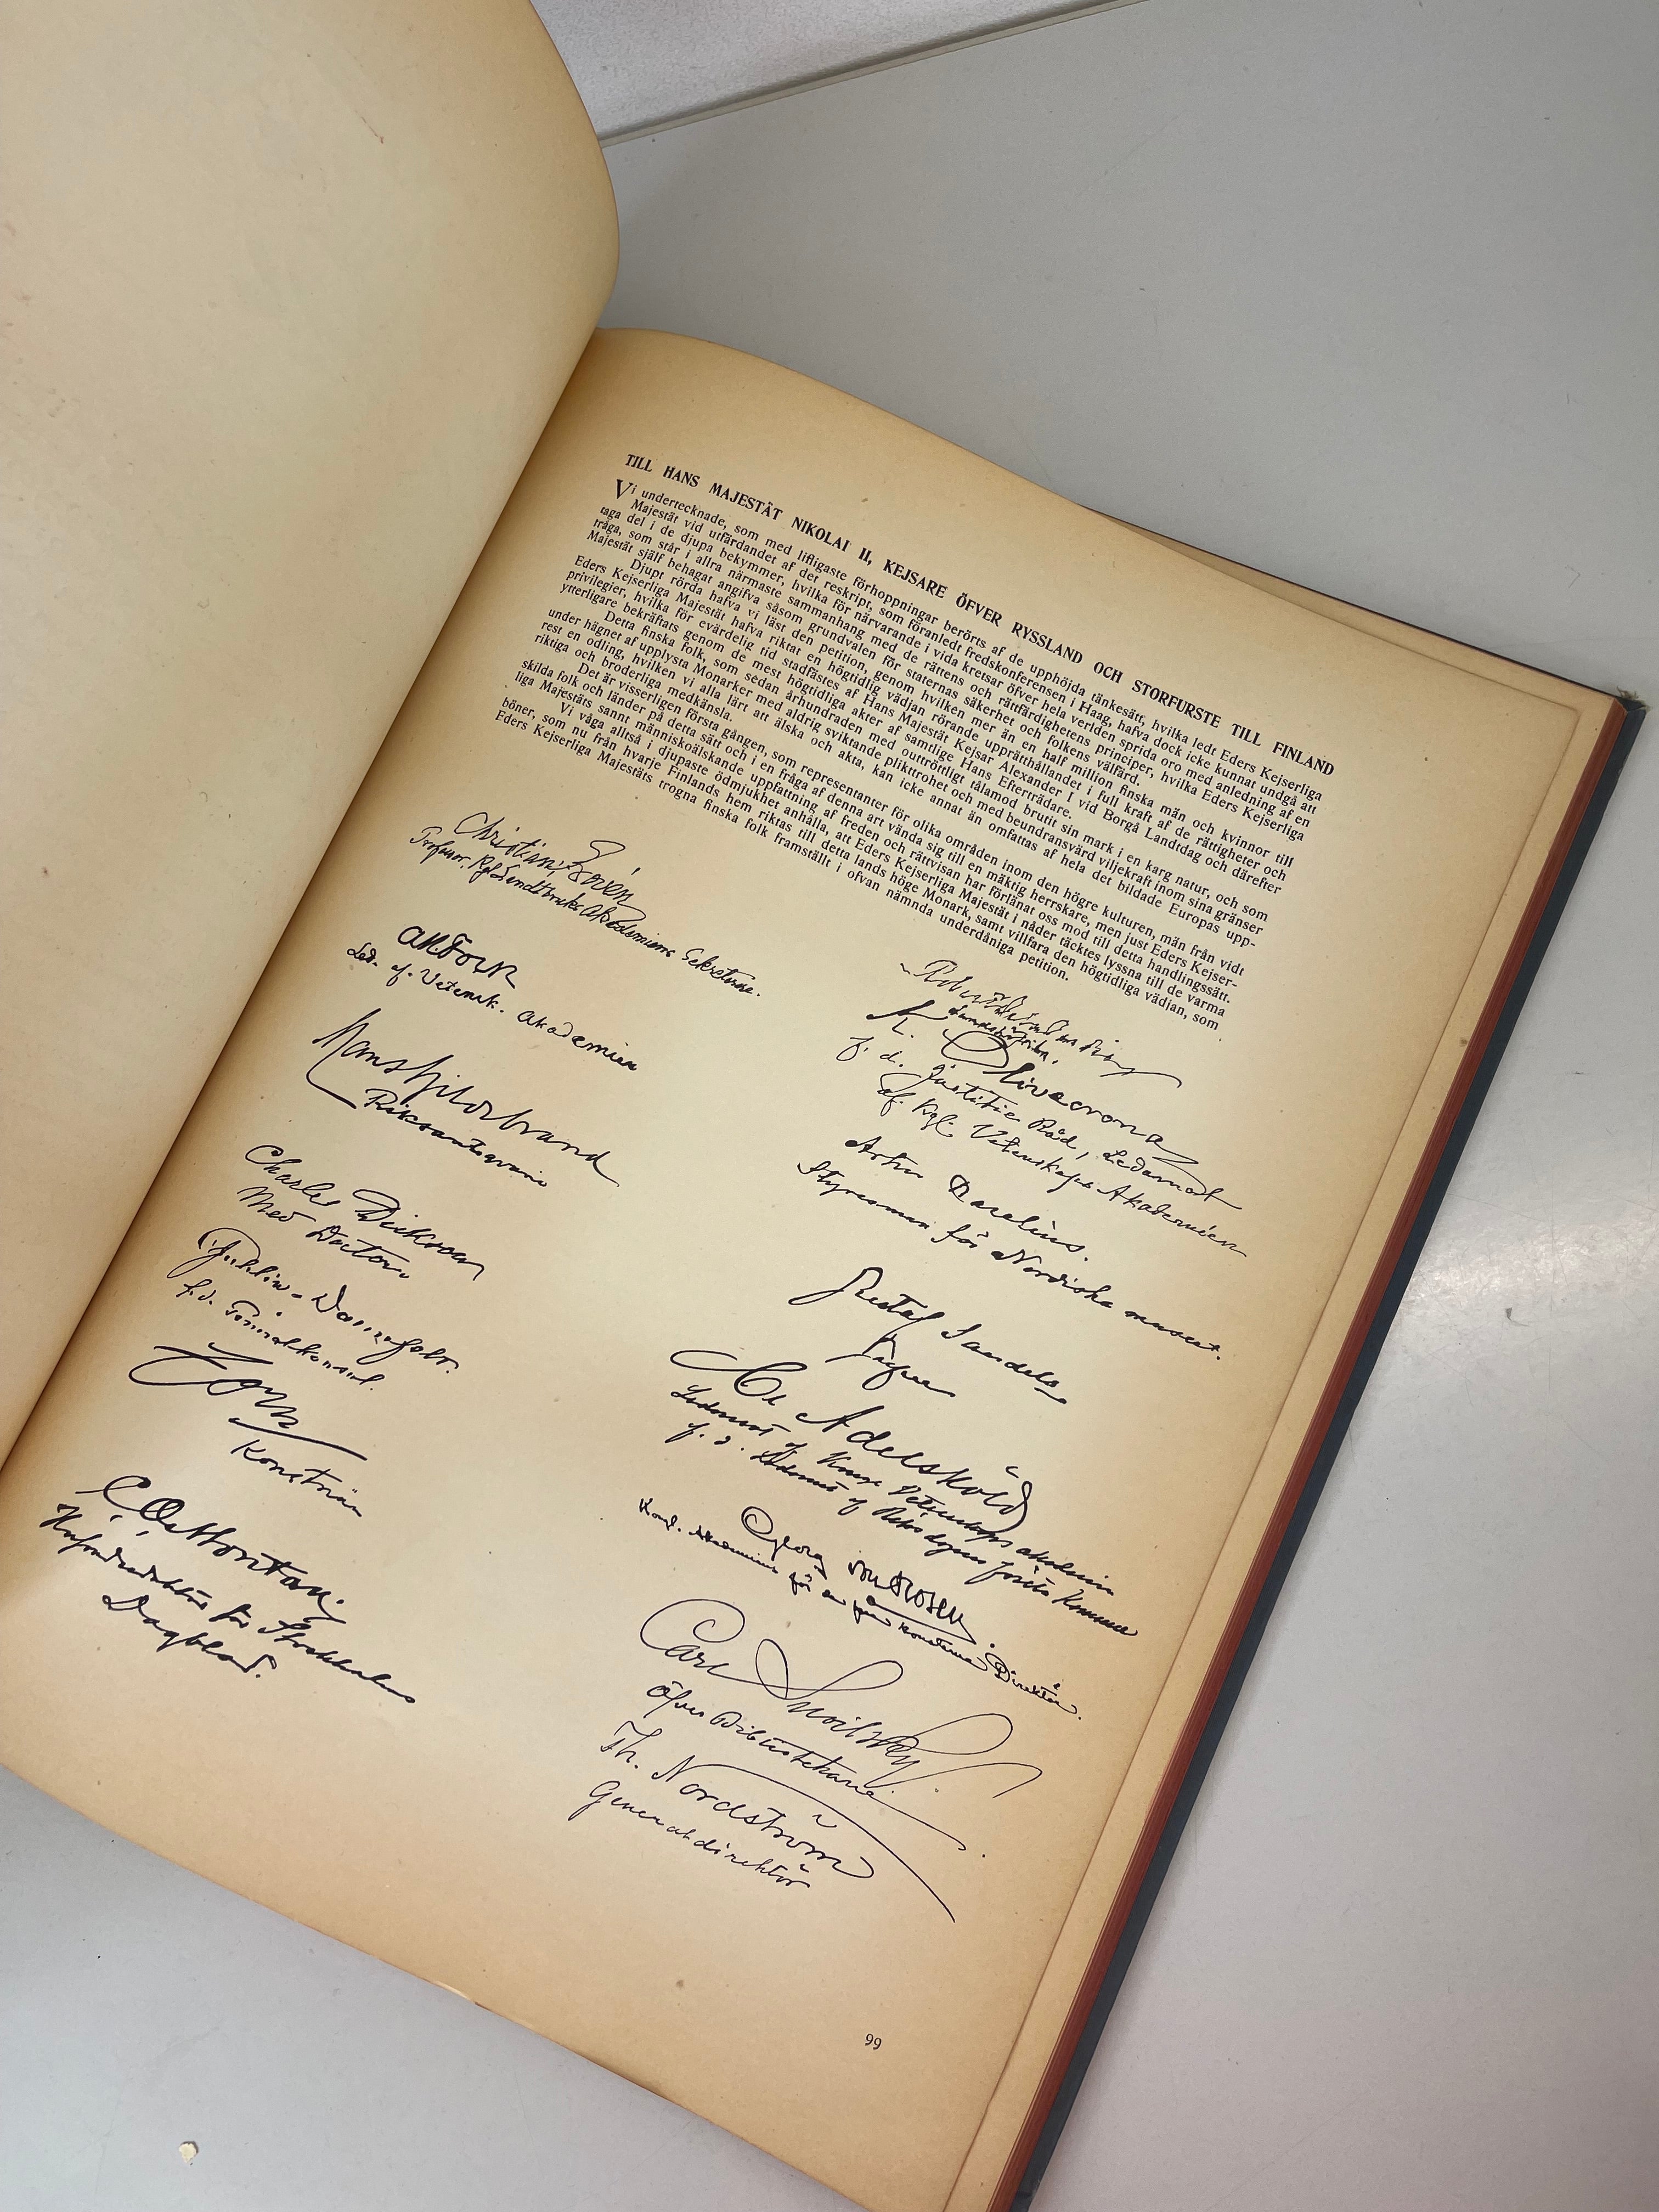 TILL HANS MAJESTÄT NIKOLAI II, KEJSARE ÖFVER RYSSLAND OCH STORFURSTE TILL FINLAND
Vi undertecknade, som med lifligaste förhoppningar berörts af de upphöjda tänkesätt, hvilka ledt Eders Kejserliga
Majestät vid utfärdandet af det reskript, som föranledt fredskonferensen i Haag, hafva dock icke kunnat undgå att
taga del i de djupa bekymmer, hvilka för närvarande i vida kretsar öfver hela verlden sprida oro med anledning af en
fråga, som står i allra närmaste sammanhang med de rättens och rättfärdighetens principer, hvilka Eders Kejserliga
Majestät själf behagat angifva såsom grundvalen för staternas säkerhet och folkens välfärd.
Djupt rörda hafva vi läst den petition, genom hvilken mer än en half million finska män och kvinnor till
Eders Kejserliga Majestät hafva riktat en högtidlig vädjan rörande upprätthållandet i full kraft af de rättigheter och
privilegier, hvilka för evärdelig tid stadfästes af Hans Majestät Kejsar Alexander I vid Borgå Landtdag och därefter
ytterligare bekräftats genom de mest högtidliga akter af samtlige Hans Efterträdare.
Detta finska folk, som sedan århundraden med outtröttligt tålamod brutit sin mark i en karg natur, och som
under hägnet af upplysta Monarker med aldrig sviktande plikttrohet och med beundransvärd viljekraft inom sina gränser
rest en odling, hvilken vi alla lärt att älska och akta, kan icke annat än omfattas af hela det bildade Europas upp-
riktiga och broderliga medkänsla.
Det är visserligen första gången, som representanter för olika områden inom den högre kulturen, män från vidt
skilda folk och länder på detta sätt och i en fråga af denna art vända sig till en mäktig herrskare, men just Eders Kejser-
liga Majestäts sannt människoälskande uppfattning af freden och rättvisan har förlänat oss mod till detta handlingssätt.
Vi våga alltså i djupaste ödmjukhet anhålla, att Eders Kejserliga Majestät i nåder täcktes lyssna till de varma
böner, som nu från hvarje Finlands hem riktas till detta lands höge Monark, samt villfara den högtidliga vädjan, som
Eders Kejserliga Majestäts trogna finska folk framställt i ofvan nämnda underdåniga petition.
Christian Lovén
Professor. Kgl Landtbruks Akademiens Sekreterare.
Led. af. Vetensk. Akademien
Hans Hildebrand
Riksantiqvarie
Charles Dickson
Med Doctor
Zorn
Konstnär
Hufvudredaktör för Stockholms
Dagblad.
K. Olivecrona
f. d. Justitie Råd, Ledamot
af Kgl. Vetenskaps Akademien
Artur Hazelius.
Styresman för Nordiska museet.
Gustaf Sandels
Cl Adelsköld
Ledamot af Kongl Vetenskaps akademien
f. d. Ledamot af Riksdagens första Kammare
Georg von Rosen
Kongl. Akademiens för de fria konsterna Direktör.
Carl Snoilsky.
Öfver Bibliotekarie.
Th. Nordström
Generaldirektör
99